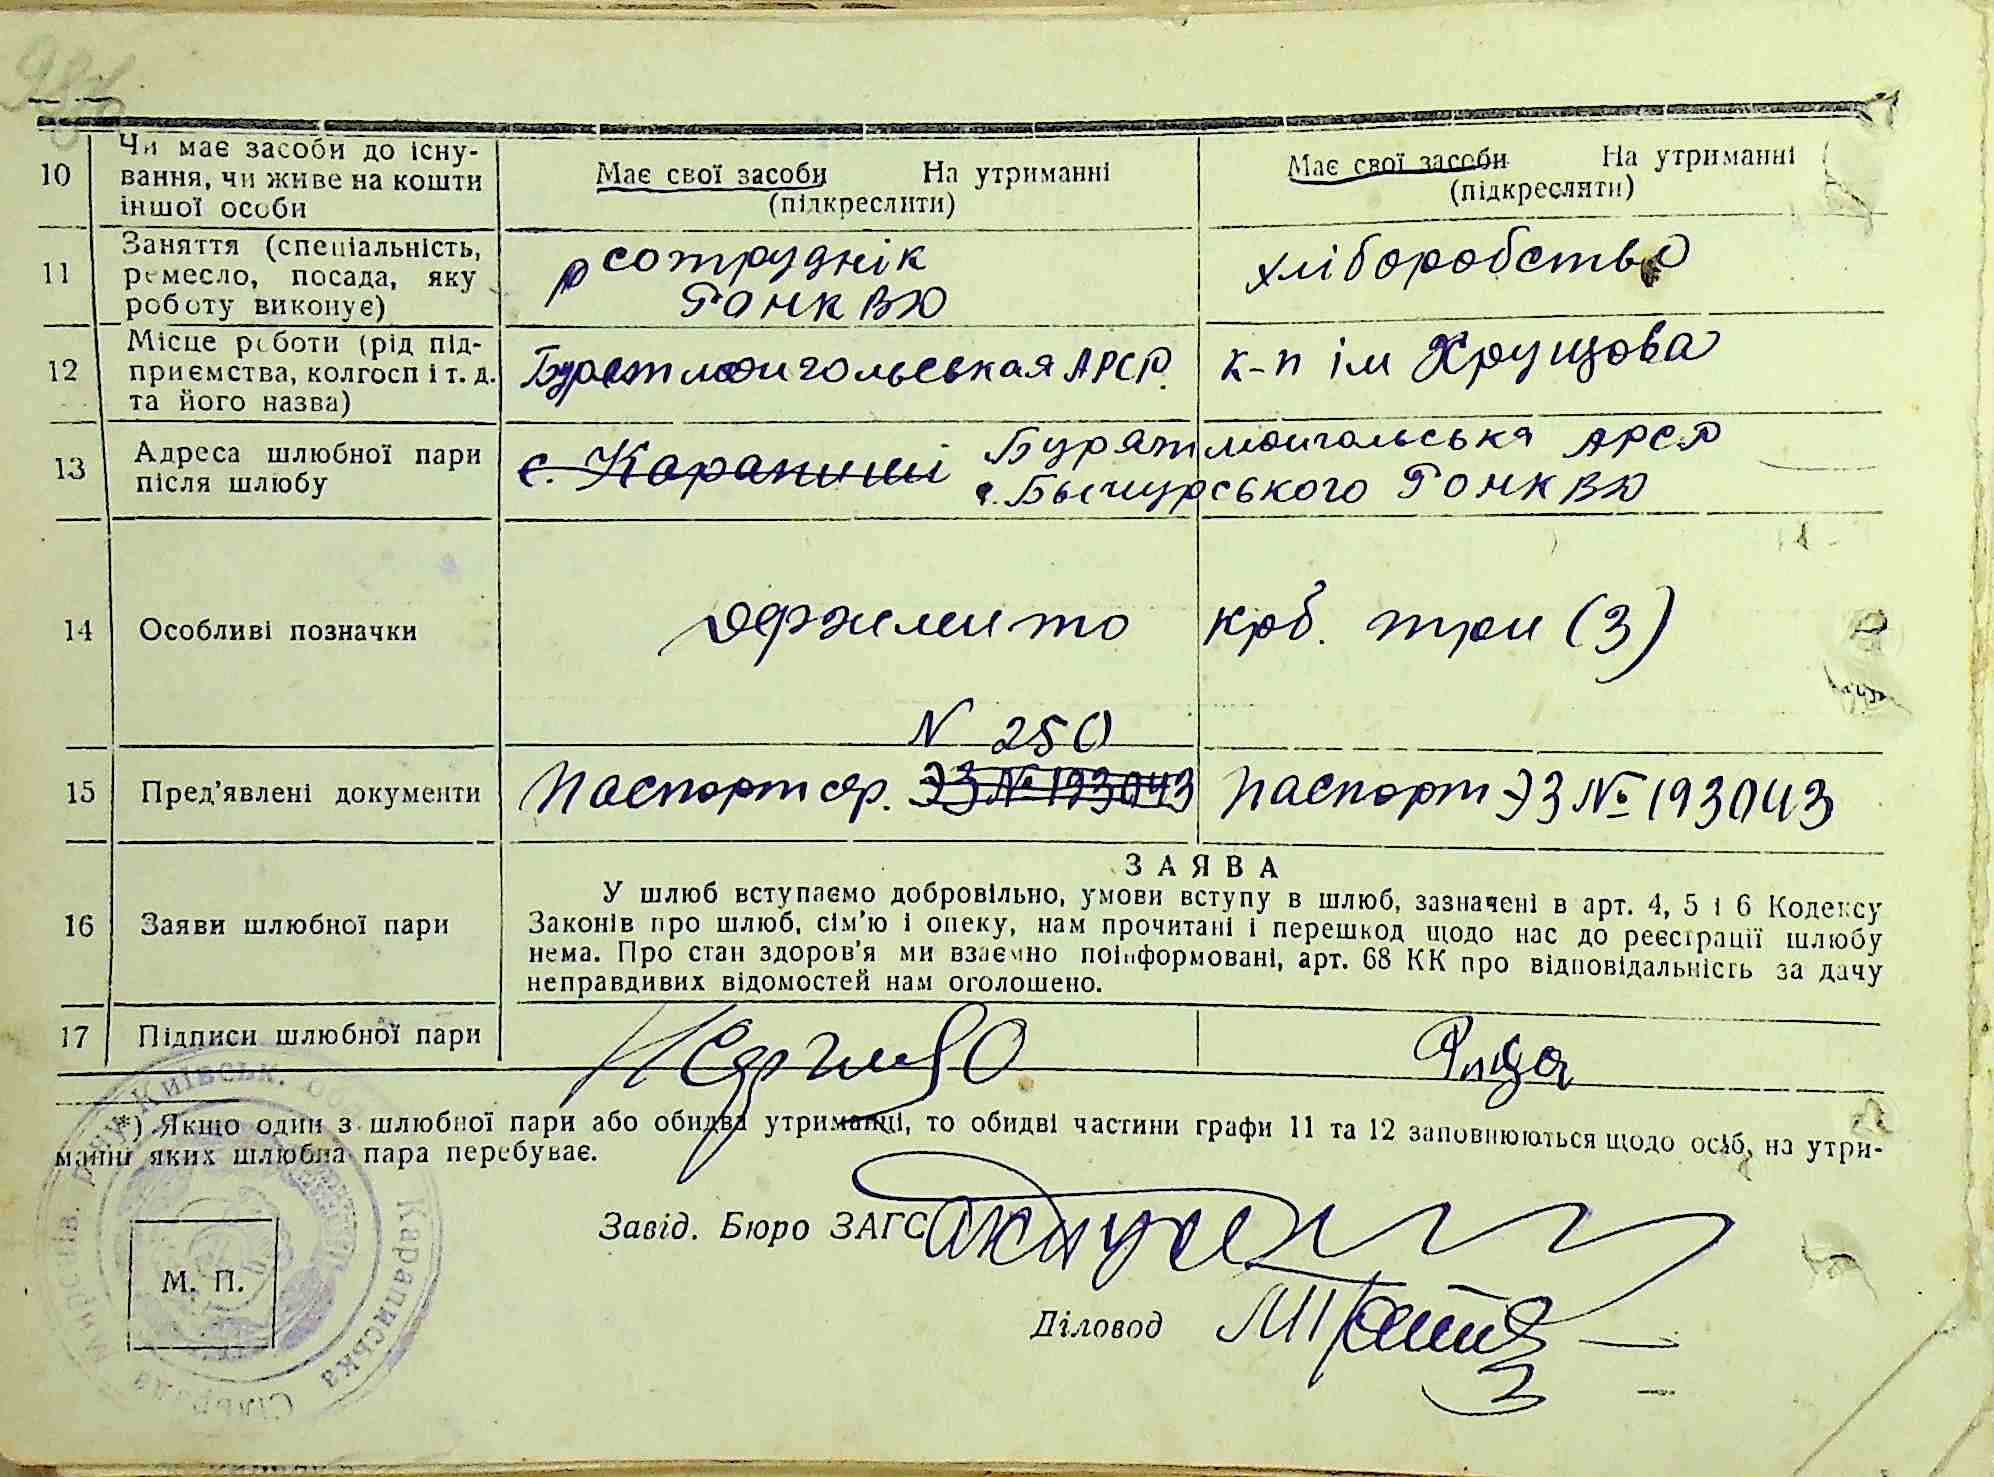 10
Чи має засоби до існу-
вання, чи живе на кошти
іншої особи
Має свої засоби На утриманні
(підкреслити)
Має свої засоби На утриманні
(підкреслити)
11
Заняття (спеціальність,
ремесло, посада, яку
роботу виконує)
сотруднік
РОНКВД
хліборобство
12
Місце роботи (рід під-
приємства, колгосп і т. д.
та його назва)
Бурятмонгольськая АРСР.
к-п ім Хрущова
13
Адреса шлюбної пари
після шлюбу
с. Карапиші Бурятмонгольська АРСР
с. Бычурського РОНКВД
14
Особливі позначки
одержано крб. три (3)
15
Пред'явлені документи
N 250
Паспорт сер. ЭЗ № 193043
Паспорт ЭЗ № 193043
16
Заяви шлюбної пари
ЗАЯВА
У шлюб вступаємо добровільно, умови вступу в шлюб, зазначені в арт. 4, 5 і 6 Кодексу
Законів про шлюб, сім'ю і опеку, нам прочитані і перешкод щодо нас до реєстрації шлюбу
нема. Про стан здоров'я ми взаємно поінформовані, арт. 68 КК про відповідальність за дачу
неправдивих відомостей нам оголошено.
17
Підписи шлюбної пари
*) Якщо один з шлюбної пари або обидва утриманці, то обидві частини графи 11 та 12 заповнюються щодо осіб, на утри-
манні яких шлюбна пара перебуває.
Завід. Бюро ЗАГС
Діловод
М. П.
Київськ. обл. Караписька Сільрада Миронів.